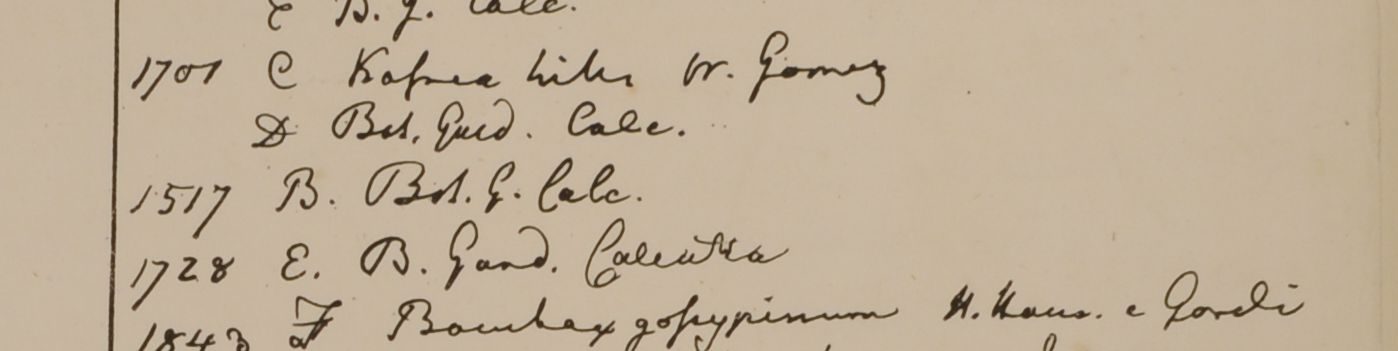 & B. G. Calc.
1701 C Kasnea hills W. Gomez
D Bot. Gard. Calc.
1517 B. Bot. G. Calc.
1728 E. B. Gard. Calcutta
1843 F Bombax gossypinum H. Ham. e Gongachi